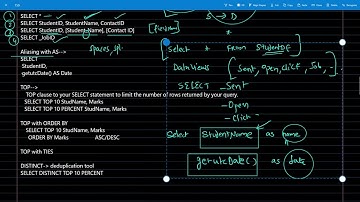 SELECT *
SELECT StudentID, StudentName, ContactID
SELECT StudentID, [StudentName], [Contact ID]
SELECT _JobID
Aliasing with AS-->
SELECT
StudentID,
getutcDate() AS Date
TOP-->
TOP clause to your SELECT statement to limit the number of rows returned by your query.
SELECT TOP 10 StudentName, Marks
SELECT TOP 10 PERCENT StudName, Marks
TOP with ORDER BY
SELECT TOP 10 StudentName, Marks
ORDER BY Marks ASC/DESC
TOP with TIES
DISTINCT-> deduplication tool
SELECT DISTINCT TOP 10 PERCENT
S → D
spaces, spl.
Select * From StudentDE
DataViews (Sent, Open, Click, Job, _)
SELECT - Sent
- Open
- Click
Select StudentName as name
getutcDate() as date